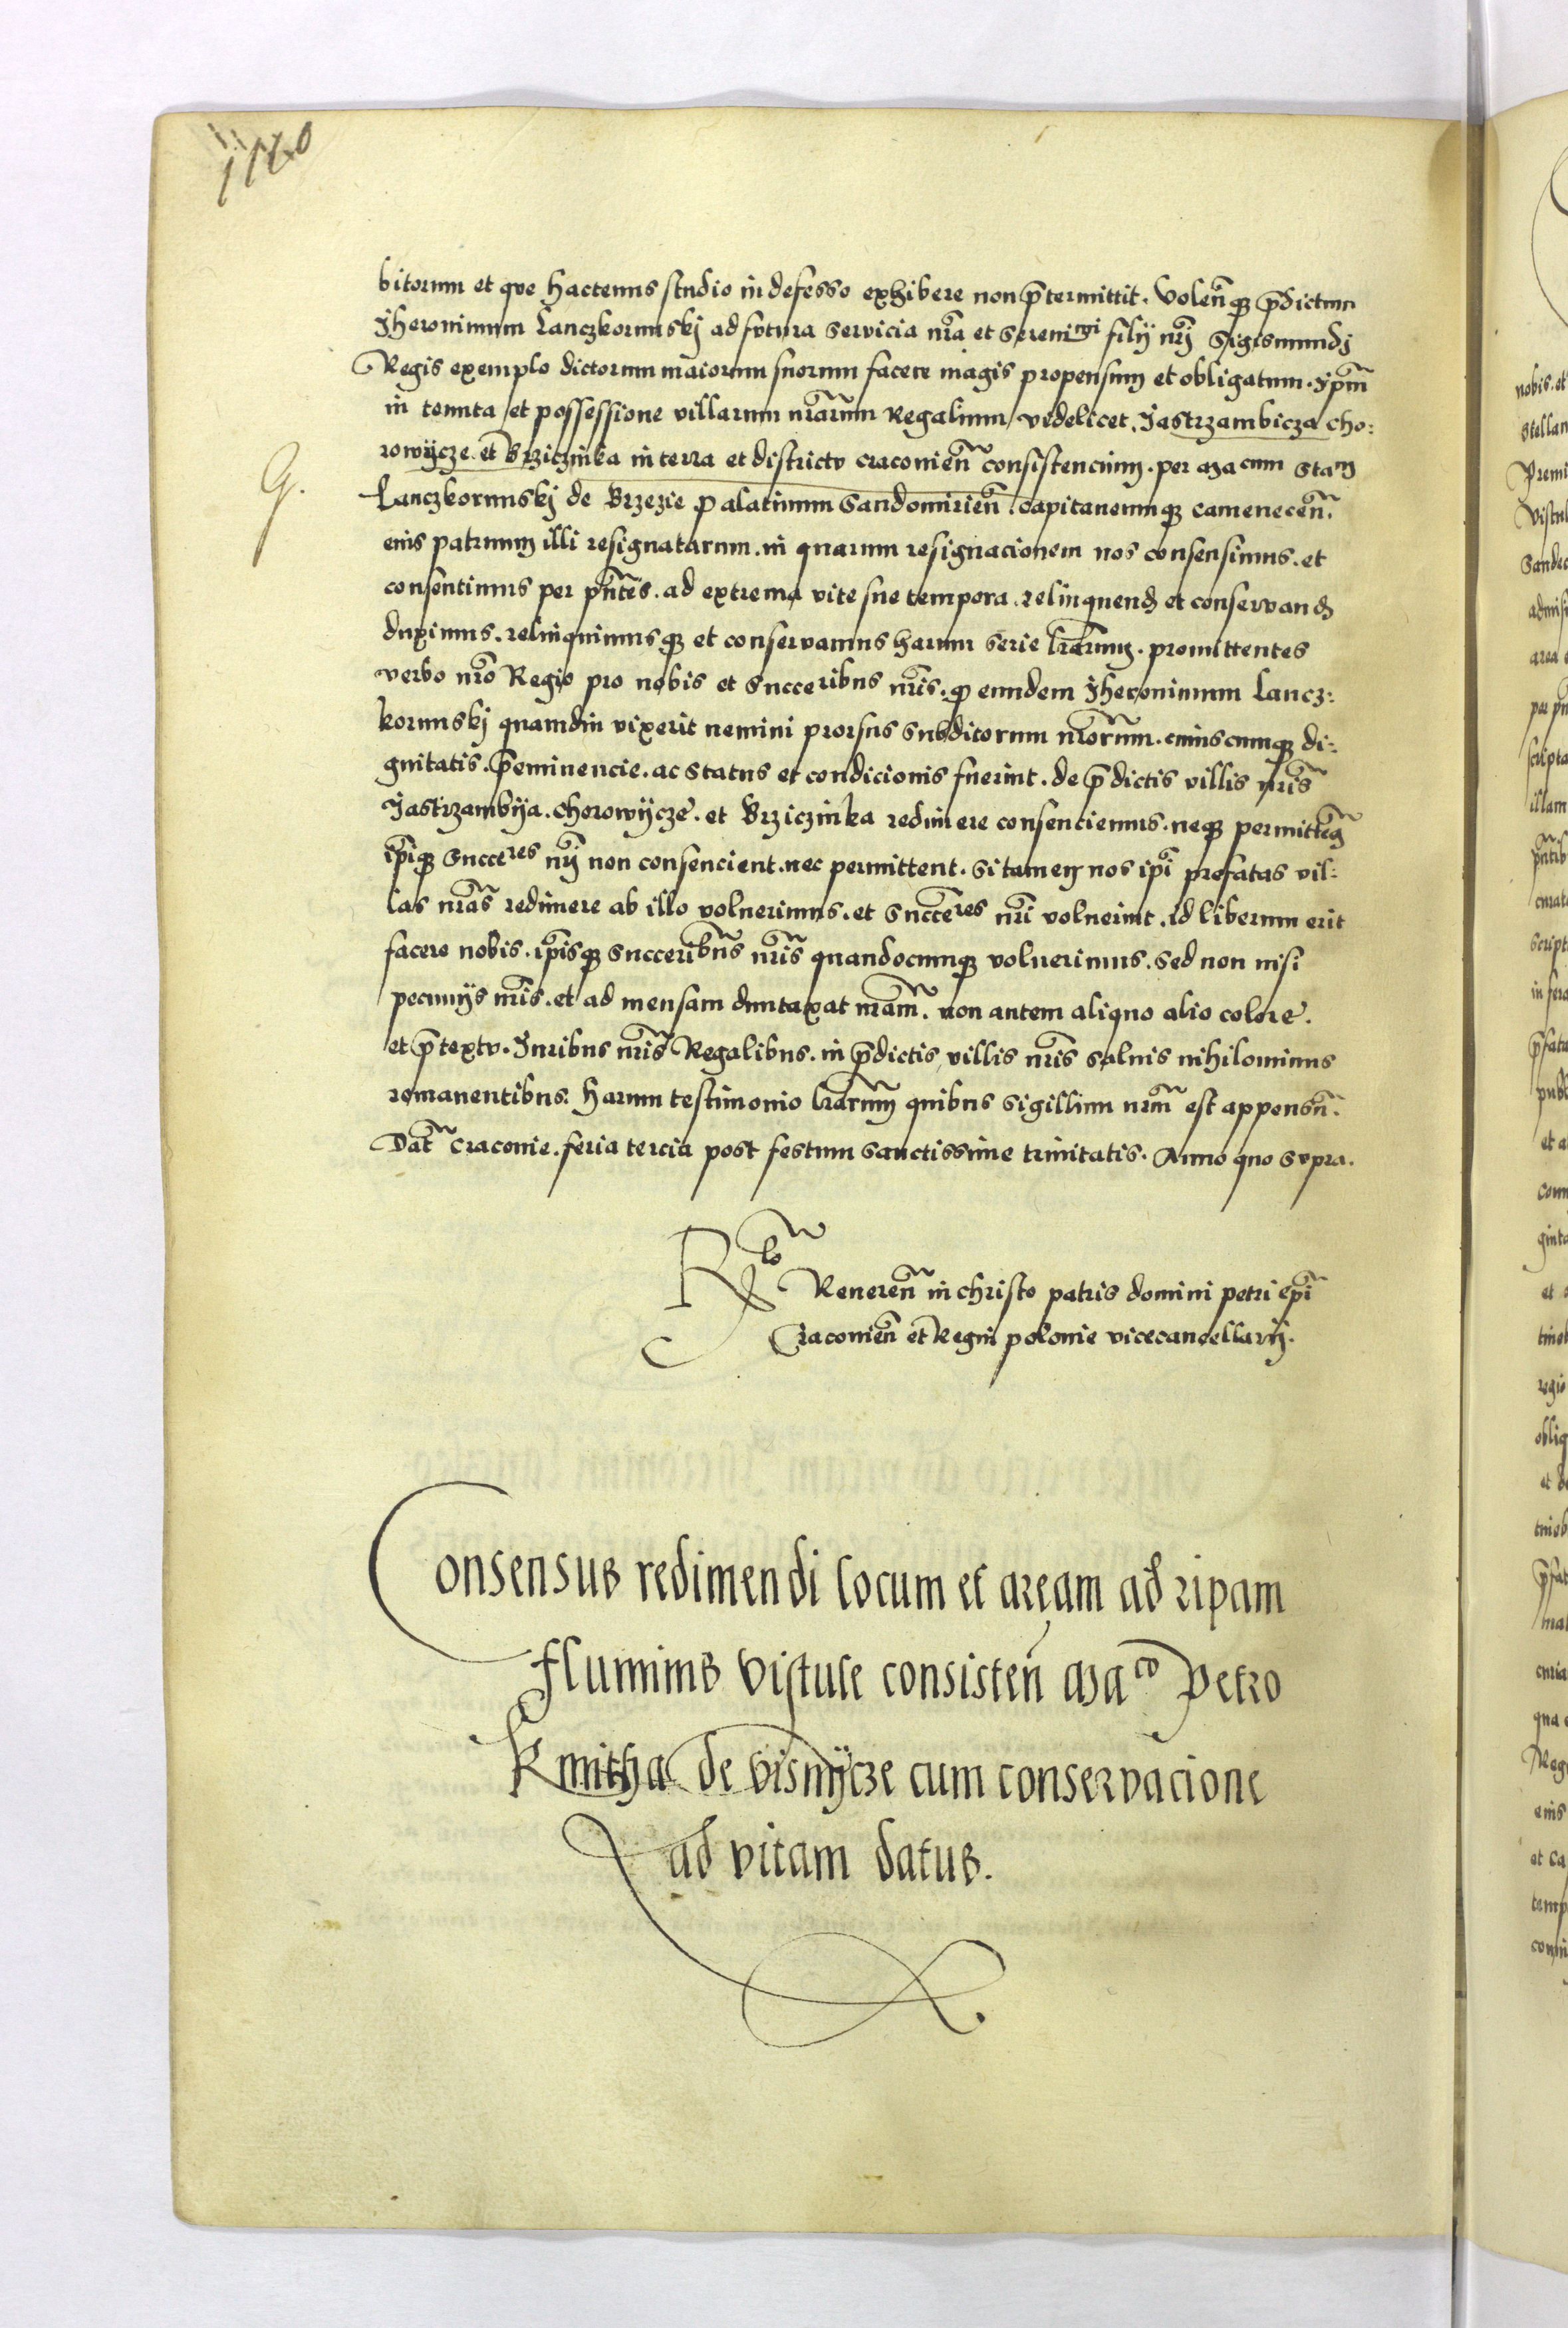 bitorum et que hactenus studio indefesso exhibere non p̄termittit. Volen̄q₃ p̄dictum
Jheronimum Lanczkorunskj ad futura servicia nr̄a et Sereni^mi filij nr̄j Sigismundj
Regis exemplo dictorum maiorum suorum facere magis propensum et obligatum. ip̄m
in tenuta et possessione villarum nr̄arum Regalium videlicet. Jastrzambicza Cho:
rowycze. et Brziczinka in terra et districtu Craconien̄ consistencium. per Ma cum Sta^m
Lanczkorunskj de Brzezie palatinum Sandomirien̄. Capitaneumq₃ Camenecen̄.
eius patruum illi resignatarum. in quarum resignacionem nos consensimus. et
consentimus per pn̄tes. ad extrema vite sue tempora. relinquend et conservand
duximus. relinquimusq₃ et conservamus harum serie lr̄arum. promittentes
verbo nr̄o Regio pro nobis et Succe^ribus nr̄is. q eundem Jheronimum Lancz:
korunskj quamdiu vixerit nemini prorsus subditorum nr̄orum. cuiuscumq₃ di:
gnitatis. p̄eminencie. ac status et condicionis fuerint. de p̄dictis villis nr̄is
Jastrzambya. Chorowycze. et Brziczinka redimere consenciemus. neq₃ permittem̄
ip̄iq₃ Succe^res nr̄j non consencient. nec permittent. Si tamen nos ip̄i prefatas vil:
las nr̄as redimere ab illo voluerimus. et Succe^res nr̄i voluerint. id liberum erit
facere nobis. ip̄isq₃ Succeribus nr̄is quandocumq₃ voluerimus. Sed non nisi
pecunijs nr̄is. et ad mensam duntaxat nr̄am. non autem aliquo alio colore.
et p̄textu. Juribus nr̄is Regalibus. in p̄dictis villis nr̄is salvis nihilominus
remanentibus. harum testimonio lr̄arum quibus sigillum nr̄m est appensū.
Dat̄ Craconie. feria tercia post festum sanctissime trinitatis. Anno quo supra.
R^lo Reveren̄ in christo patris domini petri ep̄i
Craconien̄ et Regni polonie vicecancellarij.
Consensus redimendi locum et aream ad ripam
fluminis Vistule consisten̄ Ma^co Petro
Kmitha de Visnycze cum conservacione
ad vitam datus.
G.